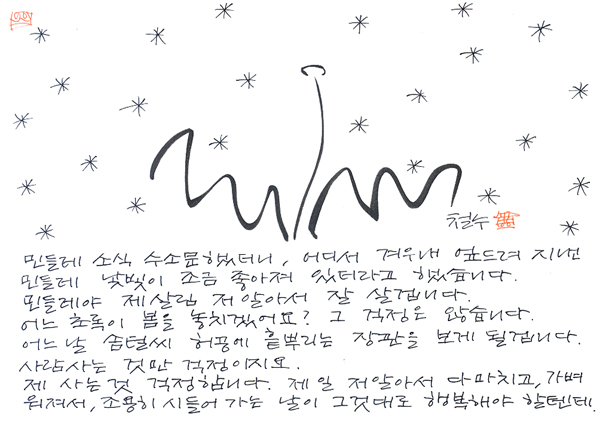 철수
민들레 소식 수소문했더니, 어디서 겨우내 엎드려 지낸
민들레 낯빛이 조금 좋아져 있더라고 했습니다.
민들레야 제살림 저알아서 잘 살겝니다.
어느 초록이 봄을 놓치겠어요? 그 걱정은 않습니다.
어느날 솜털씨 허공에 흩뿌리는 장판을 보게 될겝니다.
사람사는 것만 걱정이지요.
제 사는것 걱정합니다. 제 일 저알아서 다 마치고, 가벼
워져서, 조용히 시들어 가는 날이 그것대로 행복해야 할텐데.